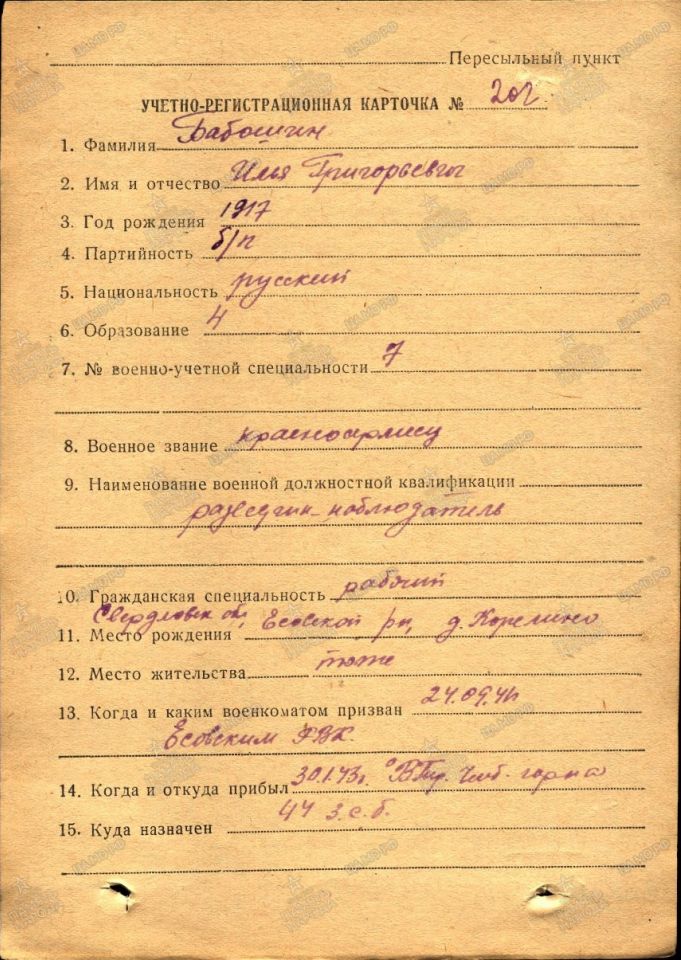 Пересыльный пункт
УЧЕТНО-РЕГИСТРАЦИОННАЯ КАРТОЧКА № 202
1. Фамилия Бабошин
2. Имя и отчество Илья Григорьевич
3. Год рождения 1917
4. Партийность б/п
5. Национальность русский
6. Образование 4
7. № военно-учетной специальности 7
8. Военное звание красноармеец
9. Наименование военной должностной квалификации
разведчик-наблюдатель
10. Гражданская специальность рабочий
Свердловск об, Есовской р-н, д. Корелино
11. Место рождения
12. Место жительства тоже
13. Когда и каким военкоматом призван 24.09.41
Есовским РВК
14. Когда и откуда прибыл 30.1.43г.
15. Куда назначен 44 з.с.б.